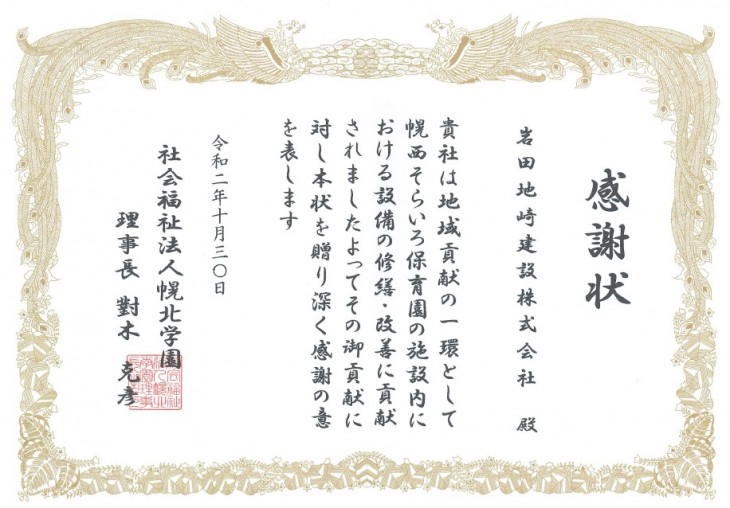 感謝状
岩田地崎建設株式会社 殿
貴社は地域貢献の一環として
幌西そらいろ保育園の施設内に
おける設備の修繕・改善に貢献
されましたよってその御貢献に
対し本状を贈り深く感謝の意
を表します
令和二年十月三〇日
社会福祉法人幌北学園
理事長 對木 克彦